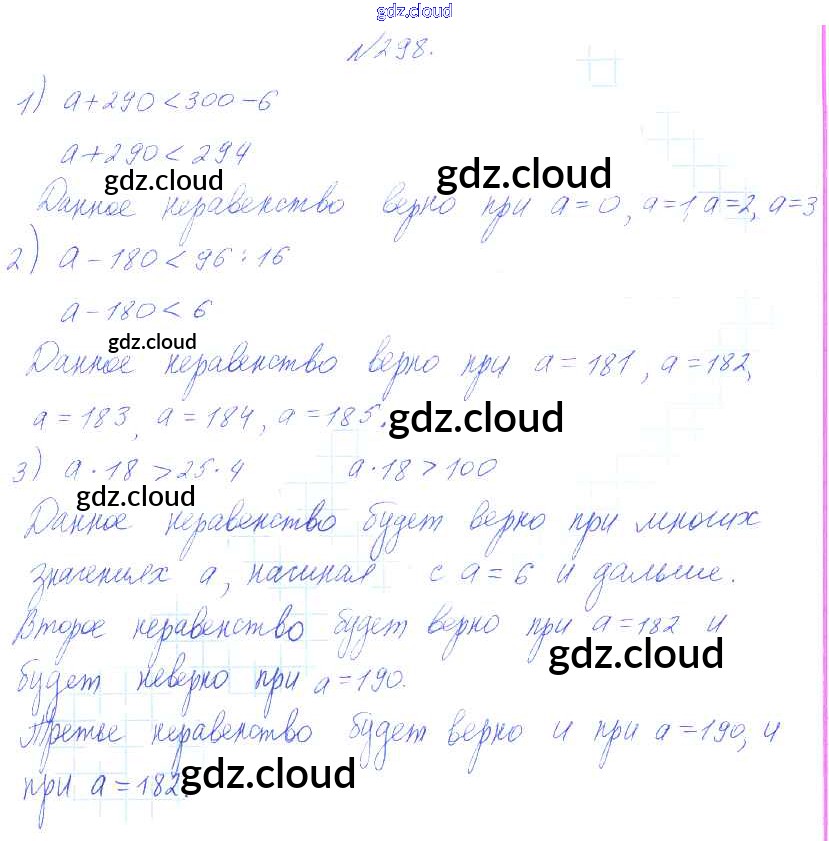 gdz.cloud
№298.
1) a+290<300-6
a+290<294
gdz.cloud
gdz.cloud
Данное неравенство верно при a=0, a=1, a=2, a=3
2) a-180<96:16
a-180<6
gdz.cloud
Данное неравенство верно при a=181, a=182,
a=183, a=184, a=185.
gdz.cloud
3) a·18>25·4 a·18>100
gdz.cloud
Данное неравенство будет верно при многих
значениях a, начиная с a=6 и дальше.
Второе неравенство будет верно при a=182 и
gdz.cloud
будет неверно при a=190.
Третье неравенство будет верно и при a=190, и
при a=182.
gdz.cloud